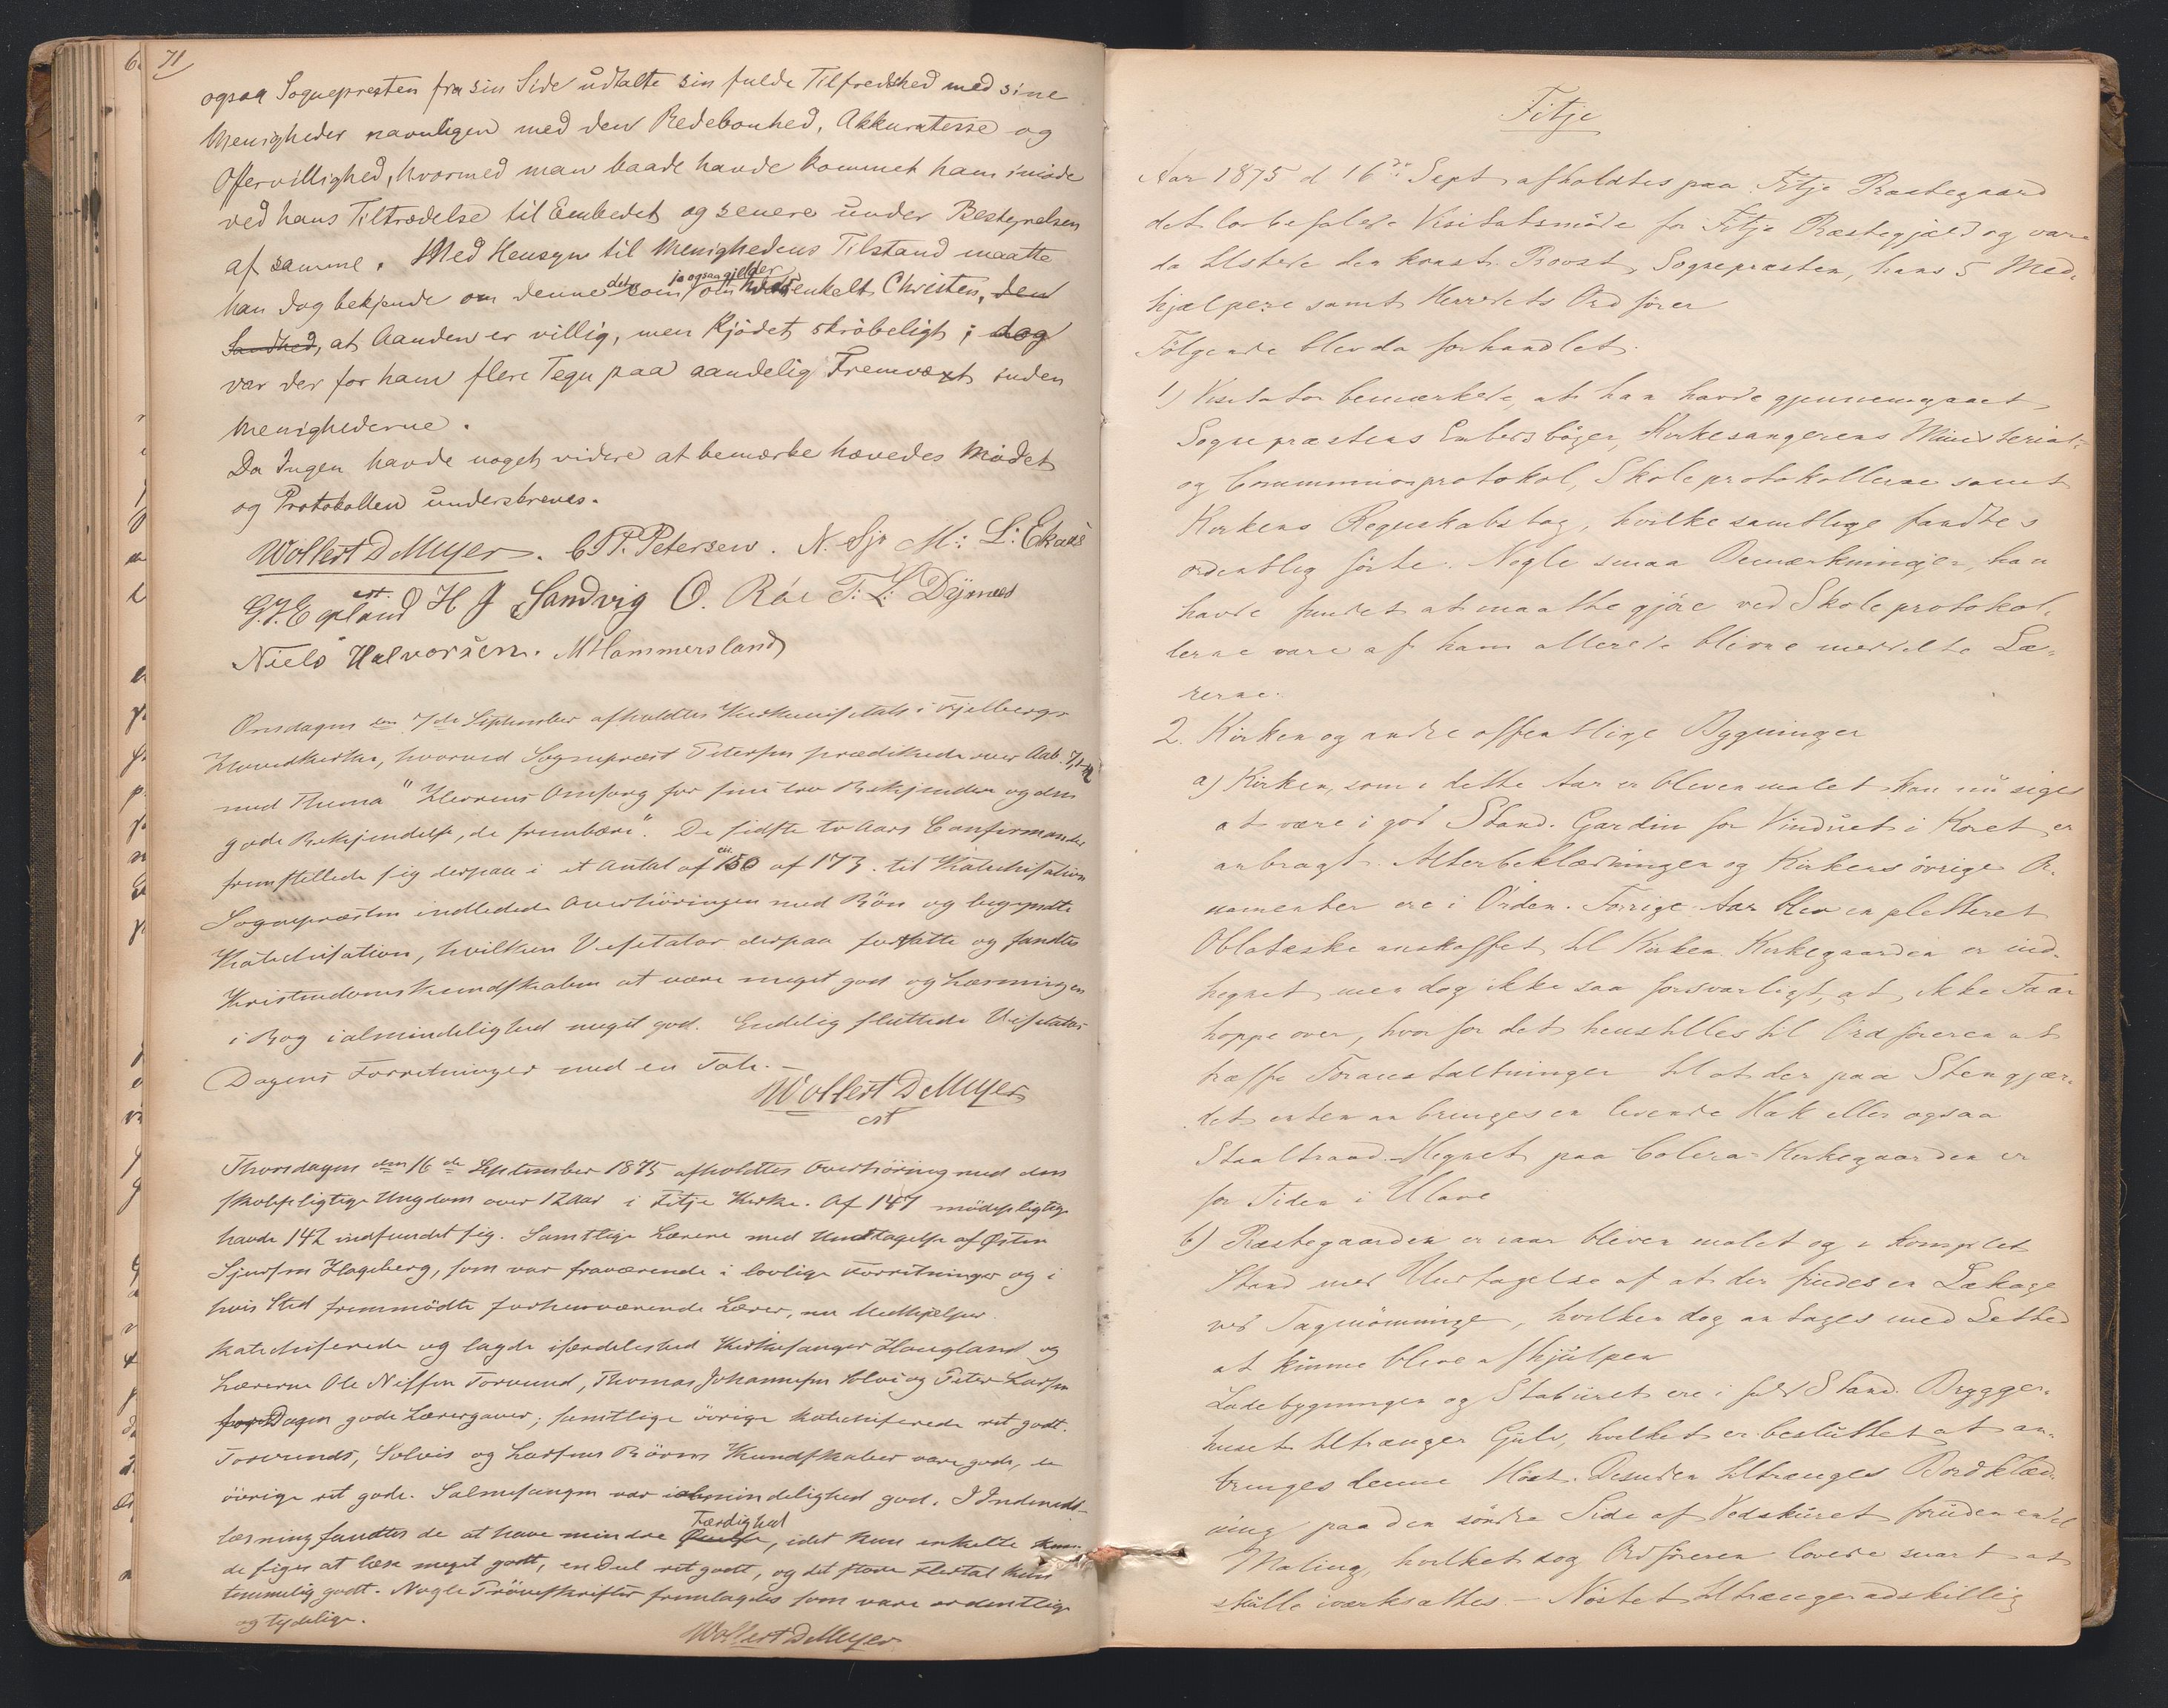 71
ogsaa Sognepresten fra sin Side udtalte sin fulde Tilfredshed med sine
Menigheder navnligen med den Redebonhed, Akkuratesse og
Offervillighed, hvormed man baade havde kommet ham imøde
ved hans Tiltrædelse til Embedet og senere under Bestyrelsen
af samme. Med Hensyn til Menighedens Tilstand maatte
han dog bekjende om denne det som ja ogsaa gjelder om enhver enkelt Christen, den
Sandhed, at Aanden er villig, men Kjødet skrøbeligt; dog
var der for ham flere Tegn paa aandelig Fremvext inden
Menighederne.
Da Ingen havde noget videre at bemærke hævedes Mødet
og Protokollen underskreves.
Wollert D Meyer. C P. Petersen. N. Sjo M: L: Ekaas
cst.
G.J. Egeland H J Sandvig O. Röe T: L: Dyrnæs
Niels Halvorsen. M Hammersland
Onsdagen den 7de September afholdtes Kirkevisitats i Fjelbergs
Hovedkirke, hvorved Sognepræst Petersen prædikede over Aab. 7,
med Thema "Herrens Omsorg for sine tro Bekjendere og den
gode Bekjendelse, de frembære". De sidste to Aars Confirmander
fremstillede sig derpaa i et Antal af ca. 150 af 173. til Katechisation
Sognepræsten indledede Overhøringen med Bøn og begyndte
Katechisation, hvilken Visitator derpaa fortsatte og fandtes
Kristendomskundskaben at være meget god og Læsningen
i Bog i almindelighed meget god. Endelig sluttede Visitator
Dagens Forretninger med en Tale.
Wollert D Meyer
cst
Thorsdagen den 16de September 1875 afholdtes Overhøring med den
skolepligtige Ungdom over 12 Aar i Fitje Kirke. Af 147 mødepligtige
havde 142 indfundet sig. Samtlige Lærere med Undtagelse af Østen
Sjursen Hageberg, som var fraværende i lovlige Forretninger og i
hvis Sted fremmødte forhenværende Lærer, nu Medhjelper
katechiserede og lagde isærdeleshed Kirkesanger Haugland og
Lærerne Ole Nilssen Torvund, Thomas Johannesen Solvi og Peter Larsen
for Dagen gode Lærergaver; samtlige øvrige katechiserede ret godt.
Torvunds, Solvis og Larsens Børns Kundskaber vare gode, de
øvrige ret gode. Salmesangen var i almindelighed god. I Indenads-
læsning fandtes de at have mindre Færdighed, idet kun enkelte kun-
de siges at læse meget godt, en Deel ret godt, og det store Flertal kun
temmelig godt. Nogle Prøveskrifter fremlagdes som vare ordentlige
og tydelige.
Wollert D Meyer
Fitje
Aar 1875 d 16de Sept. afholdtes paa Fitje Præstegaard
det lovbefalede Visitatsmøde for Fitje Præstegjæld og vare
da tilstede den konst. Provst, Sognepræsten, hans 5 Med-
hjælpere samt Herredets Ordfører
Følgende blev da forhandlet:
1) Visitator bemærkede, at han havde gjennemgaaet
Sognepræstens Embedsbøger, Kirkesangerens Ministerial-
og Communionsprotokol, Skoleprotokollerne samt
Kirkens Regnskabsbog, hvilke samtlige fandtes
ordentlig førte. Nogle smaa Bemærkninger, han
havde fundet at maatte gjøre ved Skoleprotokol-
lerne vare af ham allerede blevne meddelte Læ-
rerne.
2. Kirken og andre offentlige Bygninger
a) Kirken, som i dette Aar er bleven malet kan nu siges
at være i god Stand. Gardin for Vinduet i Koret er
anbragt. Alterbeklædningen og Kirkens øvrige Or-
namenter ere i Orden. Forrige Aar blev en pletteret
Oblatæske anskaffet til Kirken. Kirkegaarden er ind-
hegnet men dog ikke saa forsvarligt, at ikke Faar
hoppe over, hvorfor det henstilles til Ordføreren at
træffe Foranstaltninger til at der paa Stengjær-
det enten anbringes en levende Hæk eller ogsaa
Staaltraad. Hegnet paa Colera-Kirkegaarden er
for Tiden i Ulave
b) Præstegaarden er iaar bleven malet og i komplet
Stand med Undtagelse af at der findes en Lækage
ved Tagmønningen, hvilken dog antages med Lethed
at kunne blive afhjulpen
Ladebygningen og Staburet ere i fuld Stand. Brygger-
huset tiltrænger Gulv, hvilket er besluttet at an-
bringes denne Høst. Desuden tiltrænges Bordklæd-
ning paa den søndre Side af Vedskuret foruden endel
Maling, hvilket dog Ordføreren lovede snart at
skulle iværksættes. - Nøstet tiltrænger adskillig